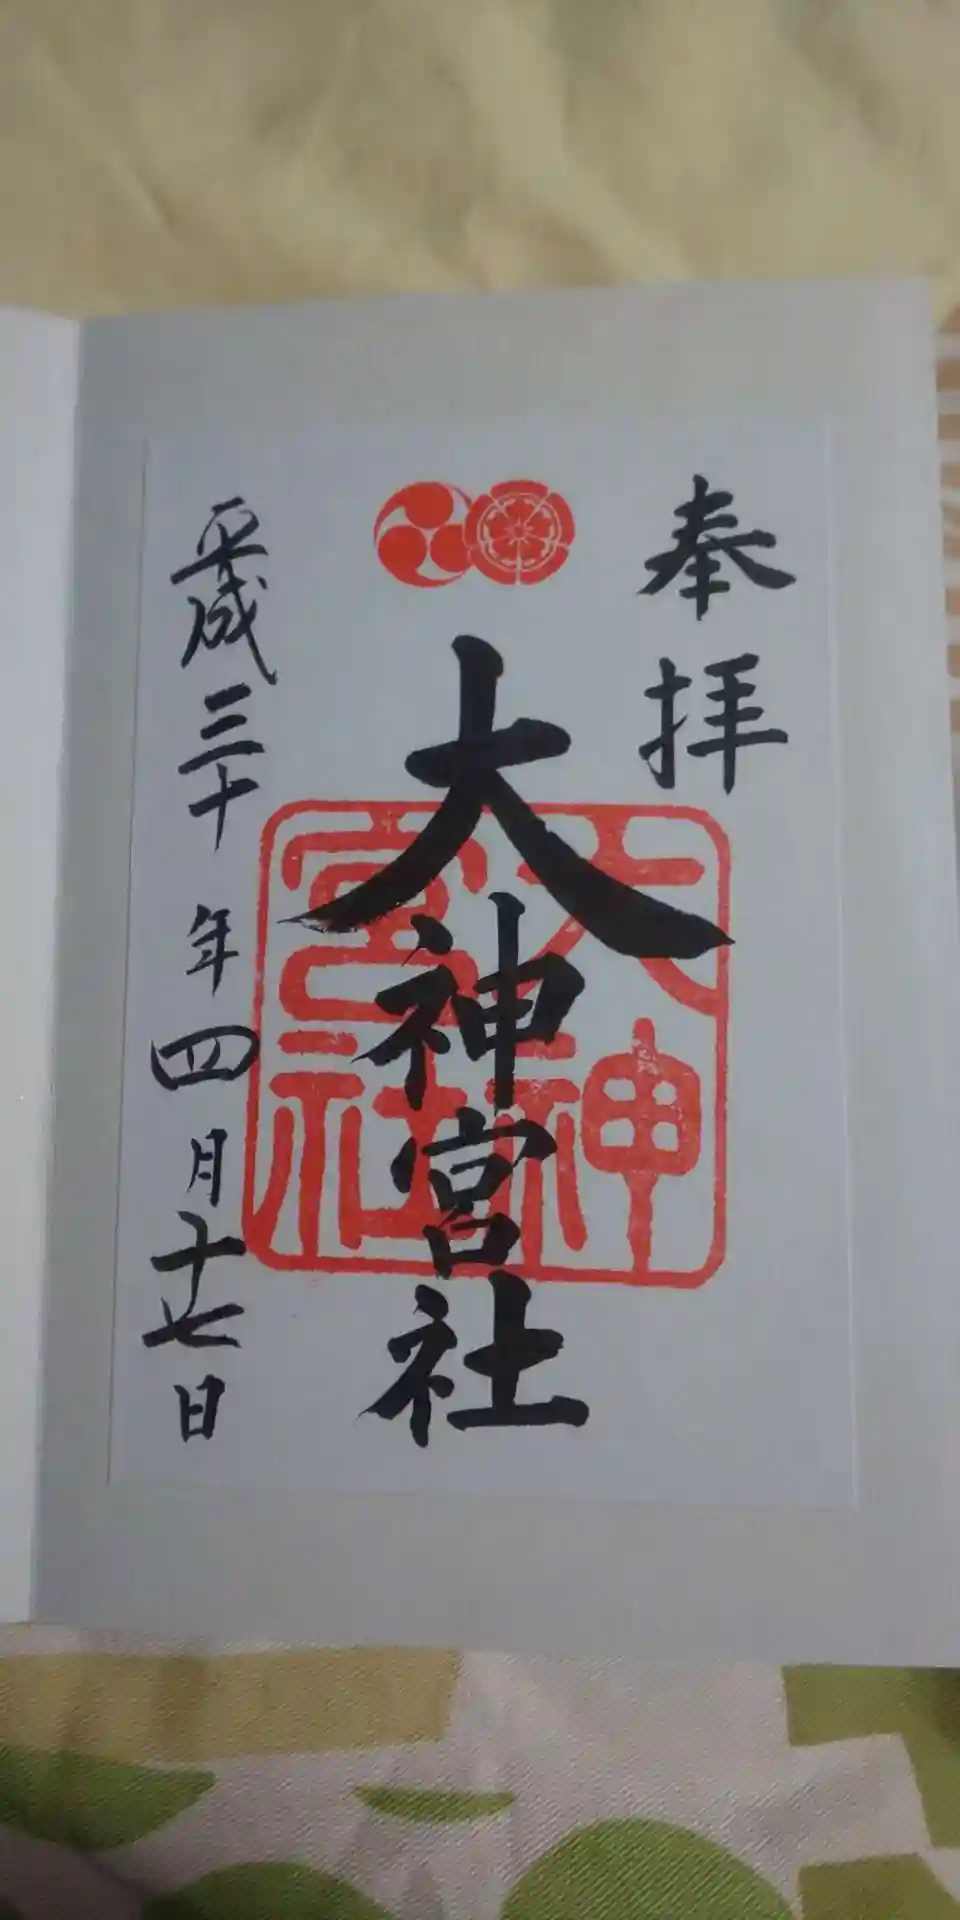 奉拝
大神宮社
大神宮社
平成三十年四月十七日